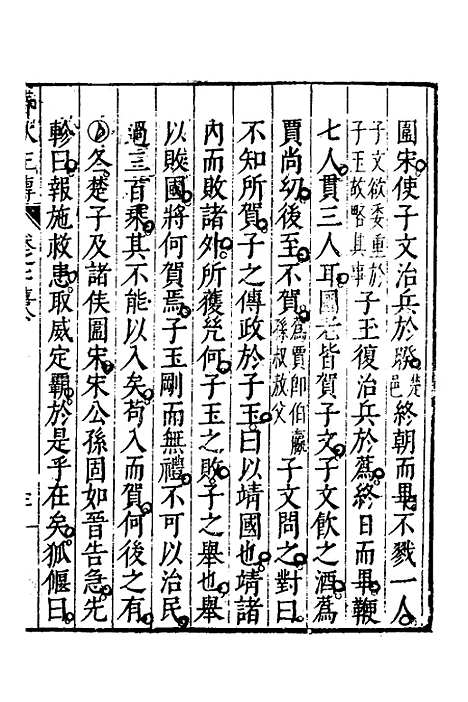 圍宋使子文治兵於睽楚邑終朝而畢不戮一人
子文欲委重於子玉故略其事子玉復治兵於蒍終日而畢鞭
七人貫三人耳國老皆賀子文子文飲之酒蒍
賈尚幼後至不賀蒍賈即伯嬴孫叔敖父子文問之對曰
不知所賀子之傳政於子玉曰以靖國也靖諸
內而敗諸外所獲幾何子玉之敗子之舉也舉
以敗國將何賀焉子玉剛而無禮不可以治民
過三百乘其不能以入矣苟入而賀何後之有
冬楚子及諸侯圍宋宋公孫固如晉告急先
軫曰報施救患取威定霸於是乎在矣狐偃曰